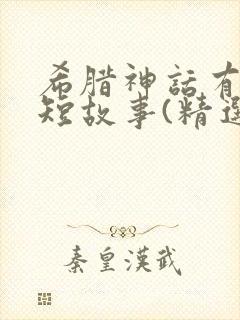 希腊神話有
短故事(精選
秦皇漢武